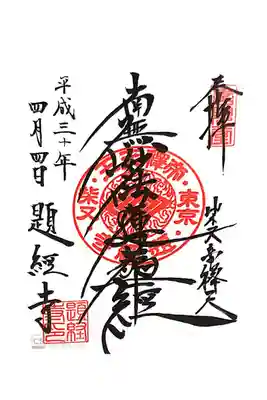 奉拝
柴又帝釈天
南無妙法蓮華経
平成三十年
四月四日 題経寺
東京
柴又
題経